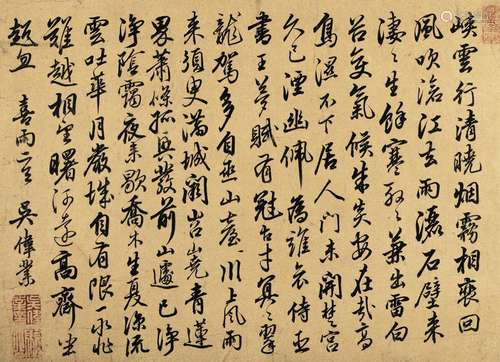 峽雲行清曉烟霧相裵回
風吹滄江去雨灑石壁来
淒〻生餘寒殷〻兼出雷白
谷變氣候朱炎安在哉高
鳥濕不下居人門未開楚宮
久已湮幽佩為誰哀侍臣
書王夢賦有冠古才冥〻翠
龍駕多自巫山臺 川上風雨
来須臾滿城闕岧嶤青蓮
界蕭條孤興發前山遽已淨
淨陰靄夜来歇喬木生夏凉流
雲吐華月嚴城自有限一水非
難越相望曙河遠高齋坐
超忽 喜雨二首 吳偉業